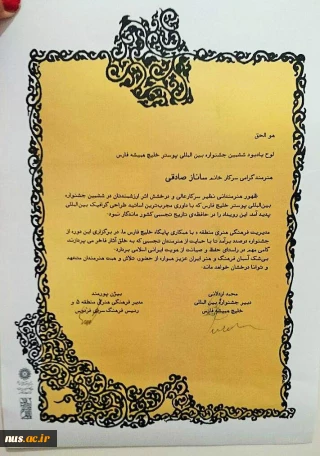 هو الحق
لوح یادبود ششمین جشنواره بین المللی پوستر خلیج همیشه فارس
هنرمند گرامی سرکار خانم ساناز صادقی
ظهور هنرمندانی نظیر سرکارعالی و درخشش اثر ارزشمندتان در ششمین جشنواره
بین‌المللی پوستر خلیج فارس که با داوری مجرب‌ترین اساتید طراحی گرافیک بین‌المللی
پدید آمد این رویداد را در حافظه‌ی تاریخ تجسمی کشور ماندگار نمود.
مدیریت فرهنگی هنری منطقه ۵ با همکاری پایگاه خلیج فارس ما، در برگزاری این دوره از
جشنواره درصدد برآمد تا با حمایت از هنرمندان تجسمی که به خلق آثار فاخر می پردازند،
گامی مهم در راستای حفظ و صیانت از هویت ایرانی اسلامی بردارد.
بی‌شک آسمان فرهنگ و هنر ایران عزیز همواره از حضور، تلالو و همت هنرمندان متعهد
و توانا درخشان خواهد ماند.
محمد اردلانی
دبیر جشنواره بین المللی
خلیج همیشه فارس
بیژن پورمند
مدیر فرهنگی هنری منطقه ۵ و
رئیس فرهنگ سرای فردوس
nus.ac.ir